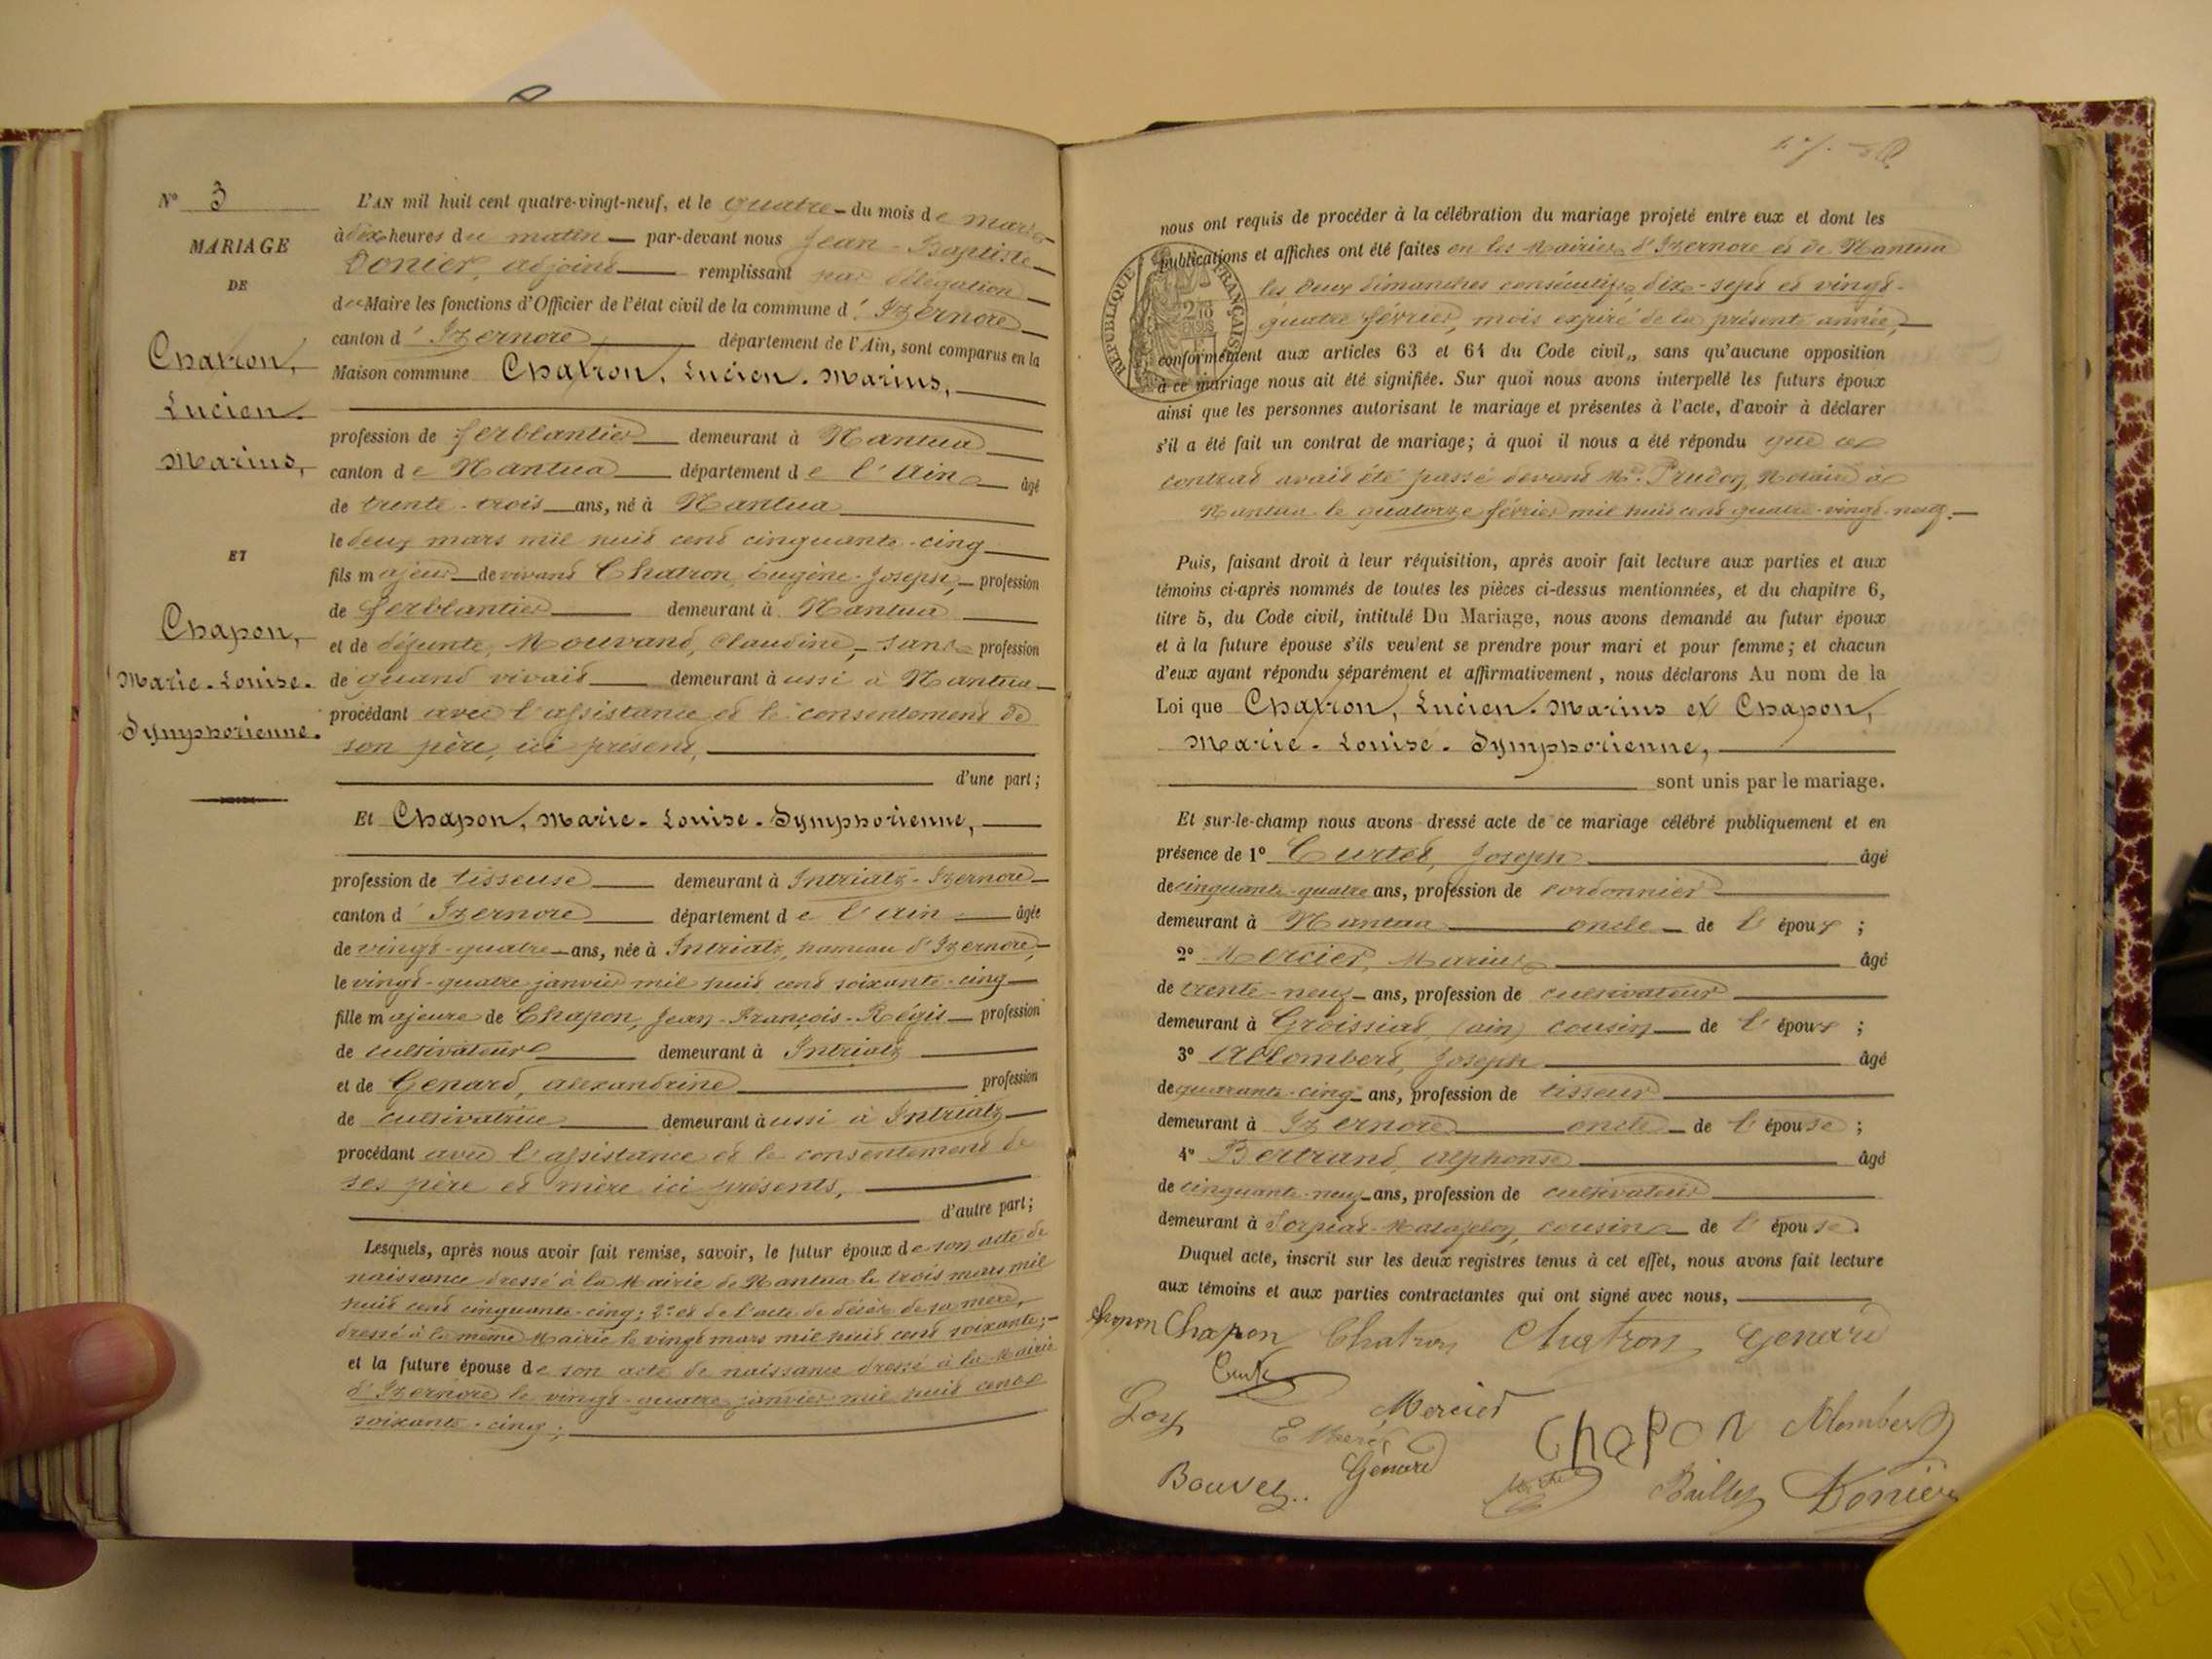 N° 3
MARIAGE
DE
Chatron,
Lucien.
Marius,
ET
Chapon,
Marie-Louise-
Symphorienne.
L'AN mil huit cent quatre-vingt-neuf, et le quatre - du mois de mars
à dix heures du matin — par-devant nous Jean-Baptiste
Donier, adjoint — remplissant par délégation
du Maire les fonctions d'Officier de l'état civil de la commune d'Izernore
canton d'Izernore département de l'Ain, sont comparus en la
Maison commune Chatron, Lucien-Marius,
profession de ferblantier demeurant à Nantua
canton de Nantua département de l'Ain âgé
de trente-trois ans, né à Nantua
le deux mars mil huit cent cinquante-cinq
fils majeur de vivant Chatron, Eugène-Joseph, profession
de ferblantier demeurant à Nantua
et de défunte, Mouvand, Claudine, - sans profession
de quand vivait demeurant aussi à Nantua
procédant avec l'assistance et le consentement de
son père, ici présent,
d'une part;
Et Chapon, Marie-Louise-Symphorienne,
profession de tisseuse demeurant à Intriatz-Izernore
canton d'Izernore département de l'Ain âgée
de vingt-quatre ans, née à Intriatz, hameau d'Izernore,
le vingt-quatre janvier mil huit cent soixante-cinq
fille majeure de Chapon, Jean-François-Régis profession
de cultivateur demeurant à Intriatz
et de Genard, Alexandrine profession
de cultivatrice demeurant aussi à Intriatz
procédant avec l'assistance et le consentement de
ses père et mère ici présents,
d'autre part;
Lesquels, après nous avoir fait remise, savoir, le futur époux de son acte de
naissance dressé à la Mairie de Nantua le trois mars mil
huit cent cinquante-cinq; 2° et de l'acte de décès de sa mère,
dressé à la même Mairie le vingt mars mil huit cent soixante;
et la future épouse de son acte de naissance dressé à la Mairie
d'Izernore le vingt-quatre janvier mil huit cent
soixante-cinq;
nous ont requis de procéder à la célébration du mariage projeté entre eux et dont les
publications et affiches ont été faites en les Mairies d'Izernore et de Nantua
les deux dimanches consécutifs, dix-sept et vingt-
quatre février, mois expiré de la présente année,
conformément aux articles 63 et 64 du Code civil, sans qu'aucune opposition
à ce mariage nous ait été signifiée. Sur quoi nous avons interpellé les futurs époux
ainsi que les personnes autorisant le mariage et présentes à l'acte, d'avoir à déclarer
s'il a été fait un contrat de mariage; à quoi il nous a été répondu que ce
contrat avait été passé devant Me Prudon, Notaire à
Nantua le quatorze février mil huit cent quatre-vingt-neuf.
RÉPUBLIQUE FRANÇAISE
Puis, faisant droit à leur réquisition, après avoir fait lecture aux parties et aux
témoins ci-après nommés de toutes les pièces ci-dessus mentionnées, et du chapitre 6,
titre 5, du Code civil, intitulé Du Mariage, nous avons demandé au futur époux
et à la future épouse s'ils veulent se prendre pour mari et pour femme; et chacun
d'eux ayant répondu séparément et affirmativement, nous déclarons Au nom de la
Loi que Chatron, Lucien-Marius et Chapon,
Marie-Louise-Symphorienne,
sont unis par le mariage.
Et sur-le-champ nous avons dressé acte de ce mariage célébré publiquement et en
présence de 1° Curtet, Joseph âgé
de cinquante-quatre ans, profession de cordonnier
demeurant à Nantua oncle de l'époux ;
2° Mercier, Marius âgé
de trente-neuf ans, profession de cultivateur
demeurant à Groissiat, (Ain) cousin de l'époux ;
3° Allombert, Joseph âgé
de quarante-cinq ans, profession de tisseur
demeurant à Izernore oncle de l'épouse ;
4° Bertrand, Alphonse âgé
de cinquante-neuf ans, profession de cultivateur
demeurant à Sorpiat-Matafelon, cousin de l'épouse.
Duquel acte, inscrit sur les deux registres tenus à cet effet, nous avons fait lecture
aux témoins et aux parties contractantes qui ont signé avec nous,
Chapon Chapon Chatron Chatron Genard
Goy Mercier
Chapon Alombert
Bouvet Génard
Baillet Donier